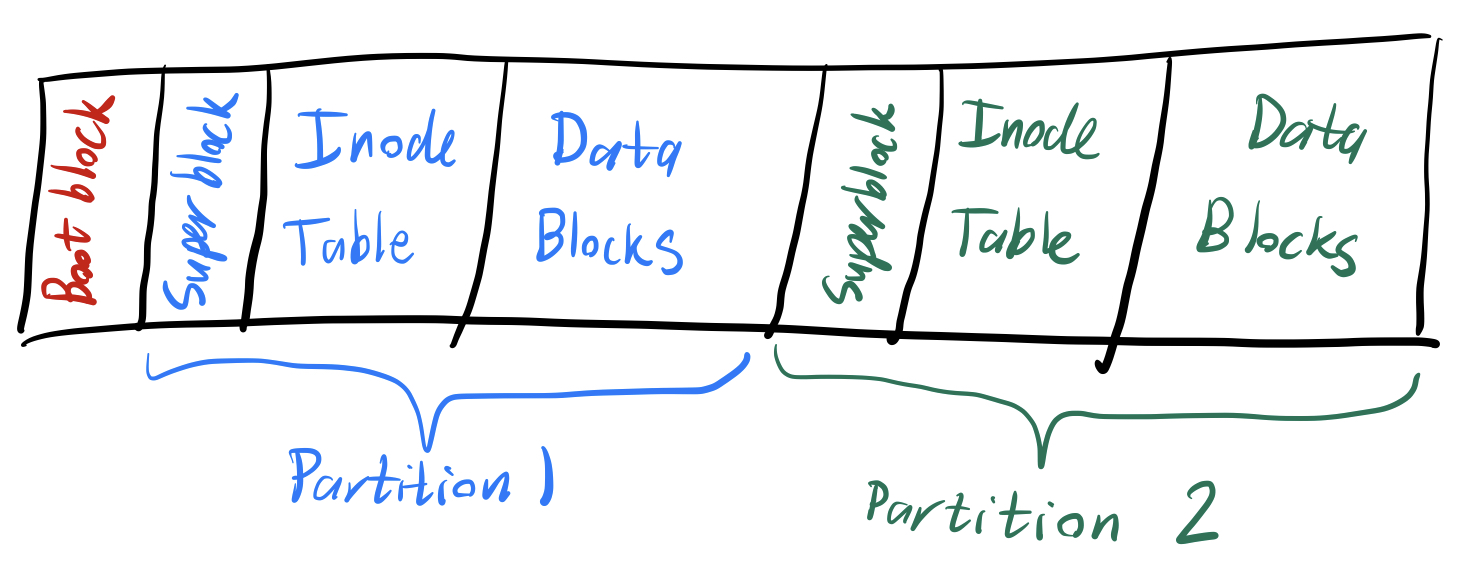 Boot block
Super block
Inode
Table
Data
Blocks
Superblock
Inode
Table
Data
Blocks
Partition 1
Partition 2